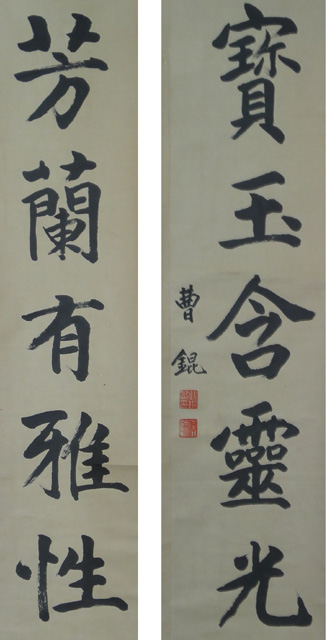 寶玉含靈光
曹錕
芳蘭有雅性